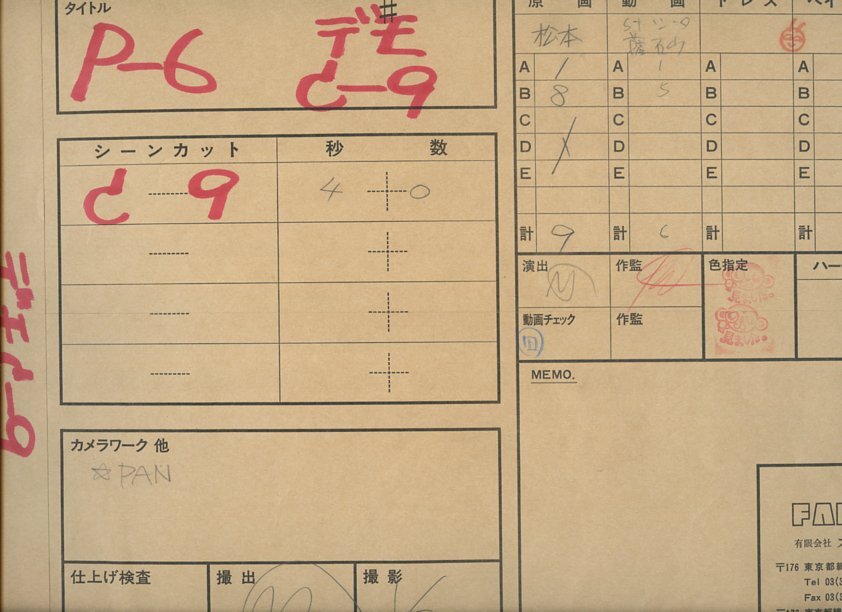 タイトル
P-6
#
デモ
C-9
シーンカット 秒 数
C 9 4 0
カメラワーク 他
☆PAN
仕上げ検査 撮出 撮影
原 画 動 画 トレス ペイ
松本
A 1 A 1 A A
B 8 B 5 B B
C C C C
D D D D
E E E E
計 9 計 6 計 計
演出 作監 色指定 ハー
動画チェック 作監
見ました。
見ました。
MEMO.
FA
有限会社
〒176 東京都練
Tel 03(3
Fax 03(3
デモ C-9